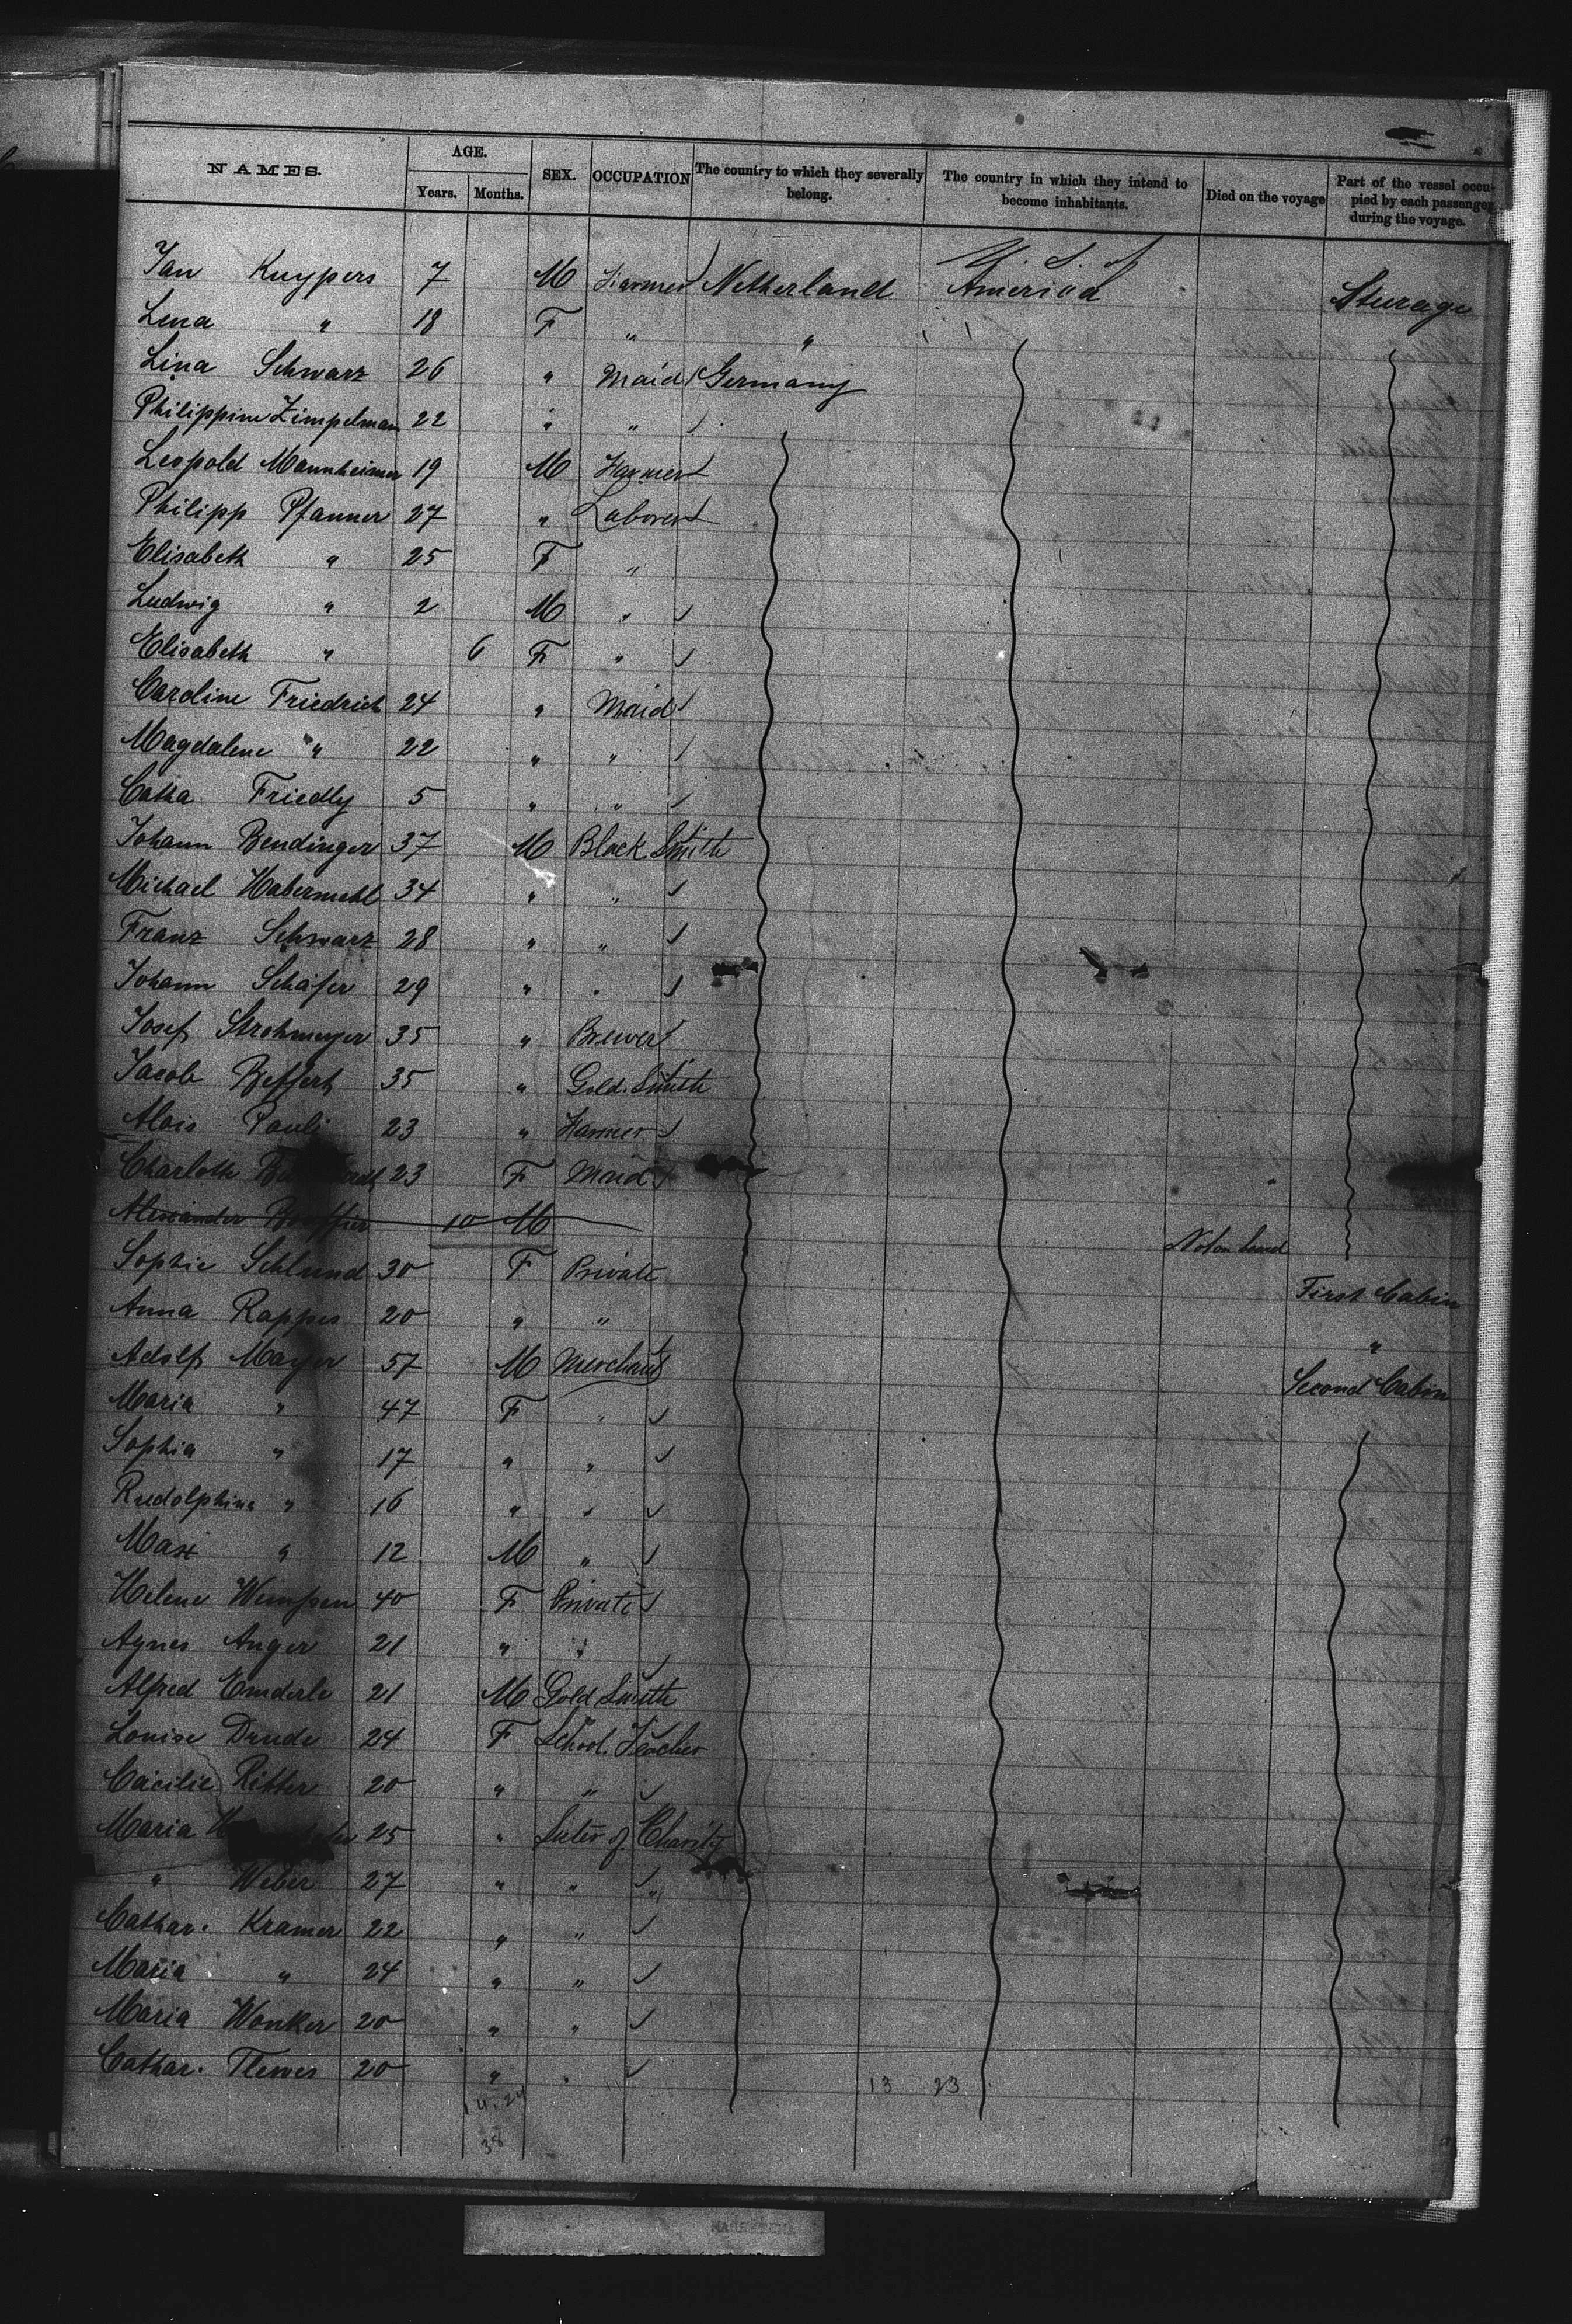 NAMES. AGE. SEX. OCCUPATION The country to which they severally belong. The country in which they intend to become inhabitants. Died on the voyage Part of the vessel occupied by each passenger during the voyage.
Years. Months.
U. S. of
Jan Kuypers 7 M Farmer Netherland America Sturage
Lena " 18 F " "
Lina Schwarz 26 " Maid Germany
Philippine Zimpelman 22 " "
Leopold Mannheimer 19 M Farmer
Philipp Pfanner 27 " Laborer
Elisabeth " 25 F "
Ludwig " 2 M "
Elisabeth " 6 F "
Caroline Friedrich 24 " Maid
Magdalene " 22 " "
Catha. Friedly 5 " "
Johann Bendinger 37 M Black Smith
Michael Habermehl 34 " "
Franz Schwarz 28 " "
Johann Schäfer 29 " "
Josef Strohmeyer 35 " Brewer
Jacob Beffert 35 " Gold Smith
Alois Pauli 23 " Farmer
Charlotte 23 F Maid
Alexander 10 M Not on board
Sophie Schlund 30 F Private First Cabin
Anna Rappes 20 " " "
Adolf Mayer 57 M Merchant Second Cabin
Maria " 47 F "
Sophia " 17 " "
Rudolphina " 16 " "
Max " 12 M "
Helene Wempen 40 F Private
Agnes Anger 21 " "
Alfred Emderle 21 M Gold Smith
Louise Drude 24 F School Teacher
Cäcilie Ritter 20 " "
Maria 25 " Sister of Charity
" Weber 27 " " "
Cathar. Kramer 22 " "
Maria " 24 " "
Maria Wonker 20 " "
Cathar. Tlewes 20 " "
14. 24 13 23
38